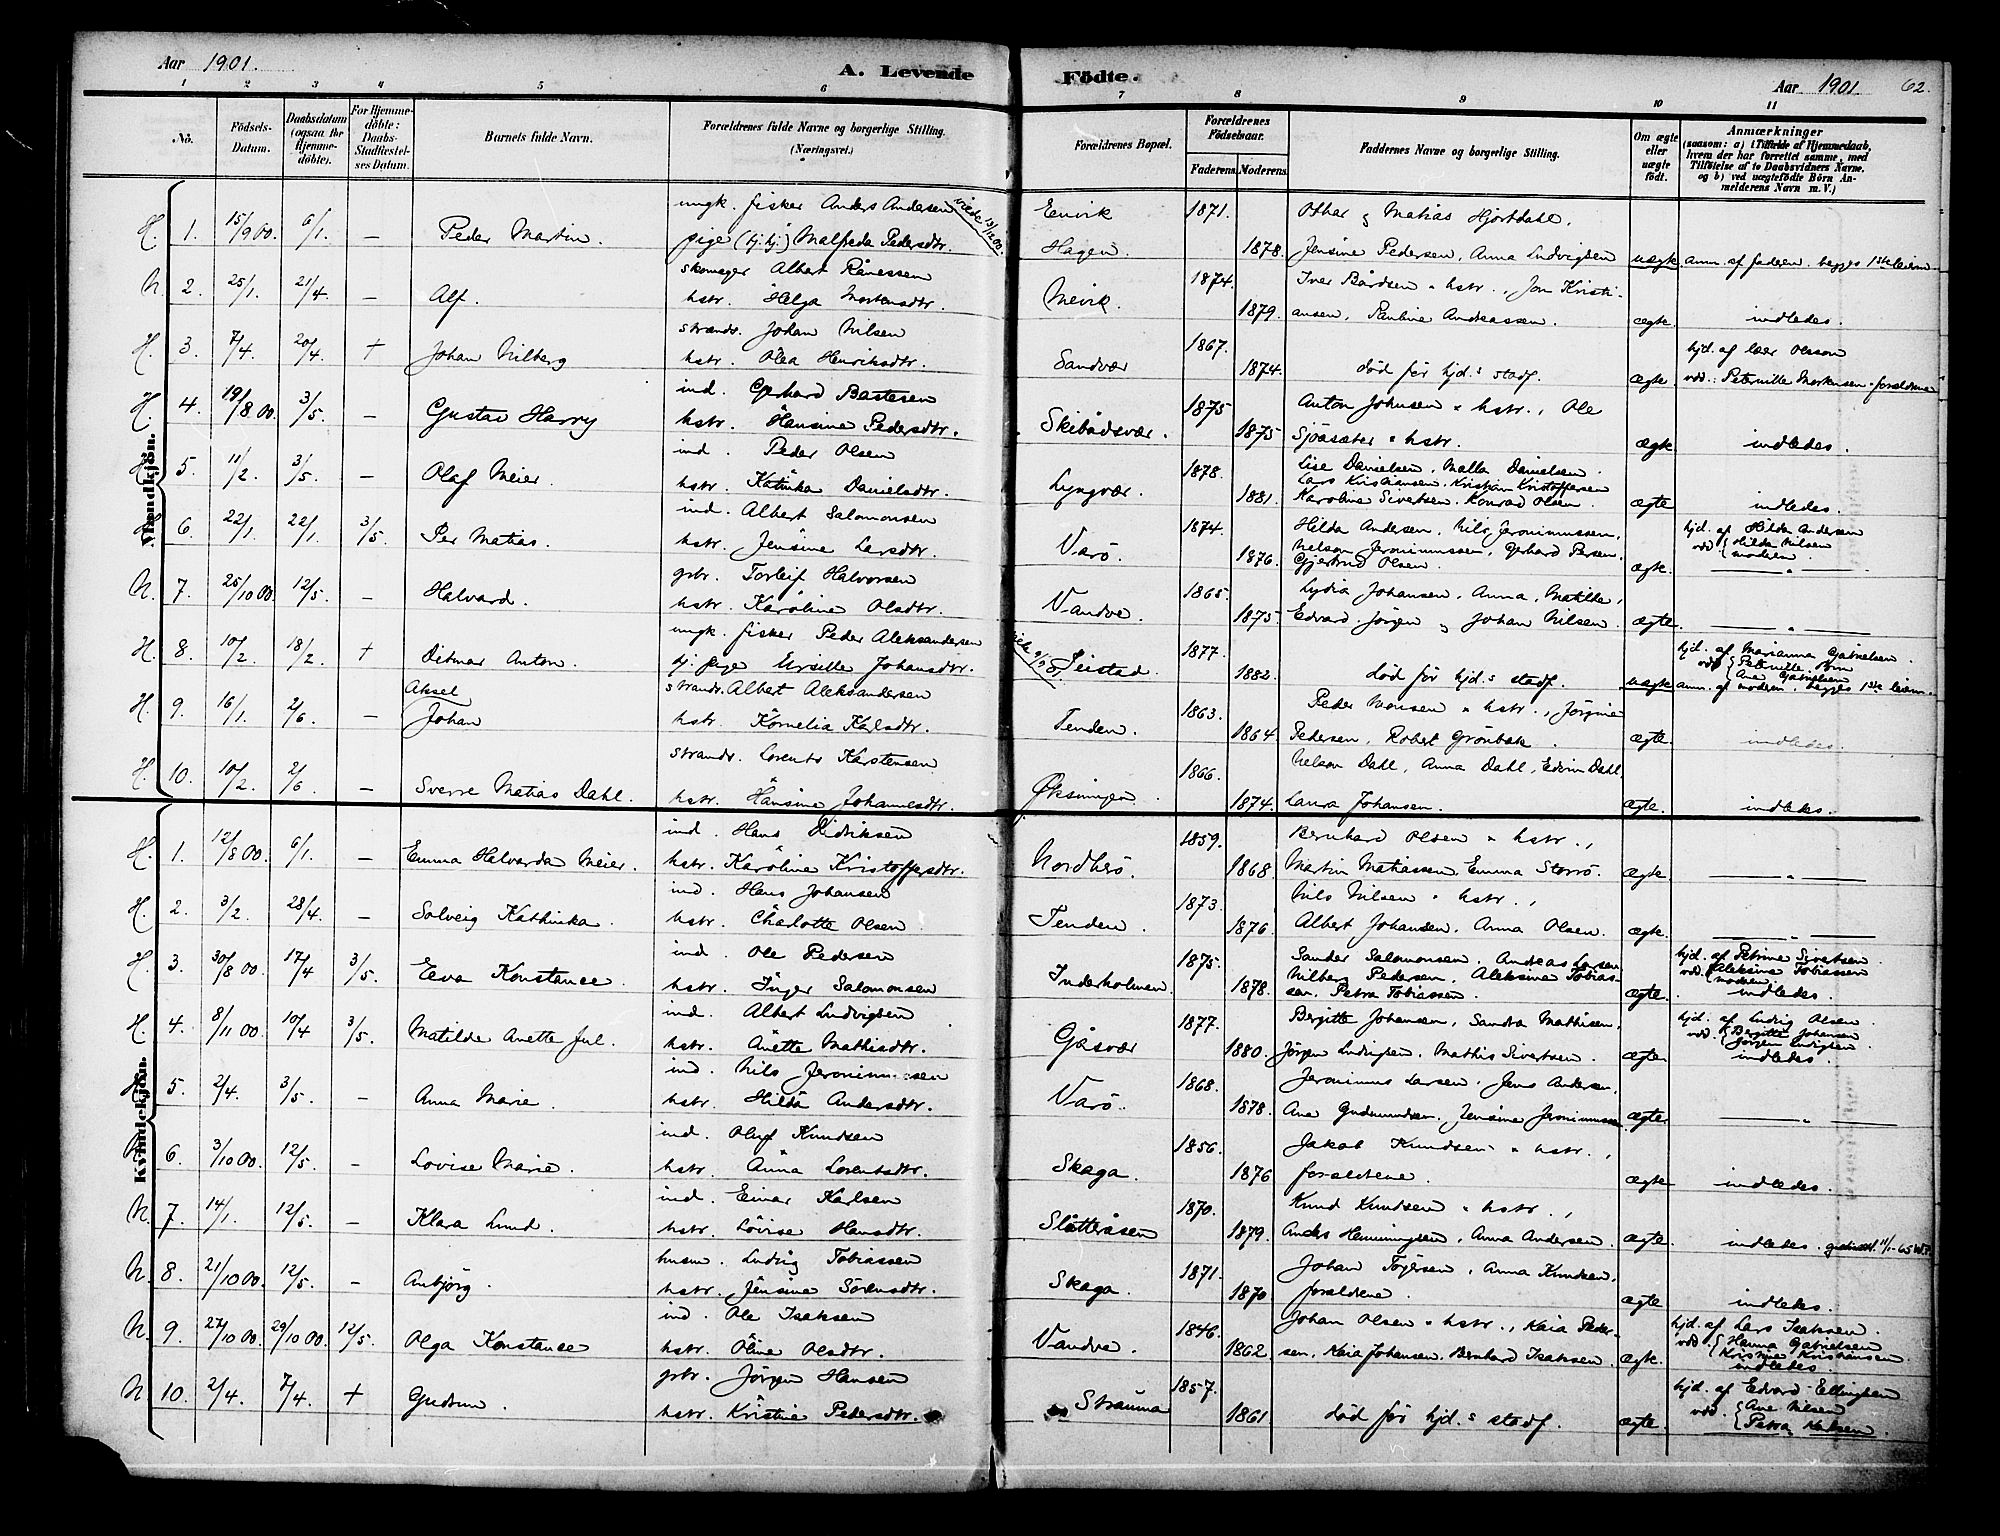 Aar 1901.
A. Levende Födte.
Aar 1901 62.
1 2 3 4 5 6 7 8 9 10 11
No.
Födsels-Datum.
Daabsdatum (ogsaa for Hjemme-döbte).
For Hjemme-döbte: Daabs-Stadfæstel-ses Datum.
Barnets fulde Navn.
Forældrenes fulde Navne og borgerlige Stilling. (Næringsvei.)
Forældrenes Bopæl.
Forældrenes Födselsaar.
Faderens. Moderens.
Faddernes Navne og borgerlige Stilling.
Om ægte eller uægte födt.
Anmærkninger (saasom: a) i Tilfælde af Hjemmedaab, hvem der har forrettet samme, med Tilföielse af to Daabsvidners Navne, og b) ved uægtefödte Börn Anmelderens Navn m. V.)
Mandkjön.
ungk. fisker Anders Andersen viede 13/12 00. Envik 1871. Othar & Matias Hjortdahl,
H. 1. 15/9 00. 6/1. — Peder Martin. pige (tj. hj.) Malfrda Pedersdtr. Hagen. 1878. Jensine Pedersen, Anna Ludvigsen uægte. anm. af faderen. begges 1ste leierm.
skomager Albert Rånessen 1874. Iver Bårdsen " hstr., Jon Kristi-
N. 2. 25/1. 21/4 — Alf. hstr. Helga Mortensdtr. Mevik. 1879. ansen, Pauline Andreassen. ægte. indledes.
strands. Johan Nilsen 1867. hjd. af lær Olsson
H. 3. 7/4. 20/4 + Johan Nilberg hstr. Olea Henriksdtr. Sandvær 1874. død før hjd.s stadf. ægte vdd.: Peternille Mortensen forældrene
ind. Gerhard Bastesen 1875 Anton Johnsen " hstr., Ole
H. 4. 19/8 00. 3/5. — Gustav Harry hstr. Hansine Pedersdtr. Skibådsvær. 1875 Sjøsæter " hstr. ægte. indledes.
ind. Peder Olsen 1878. Lise Danielsen, Malla Danielsen.
Lars Kristiansen, Kristian Kristoffersen
H. 5. 11/2. 3/5. — Olaf Meier. hstr. Katinka Danielsdtr. Lyngvær. 1881. Karoline Sivertsen, Konrad Olsen. ægte indledes.
ind. Albert Salomonsen 1874. Hilda Andersen, Nils Jeronimussen, hjd. af Hilda Andersen
H. 6. 22/1. 22/1. 3/5. Per Matias. hstr. Jensine Larsdtr. Varö. 1876. Nelson Jeronimussen, Gerhard Persen, Gjertrud Olsen. ægte. vdd. { Hilda Nilsen moderen
gbr. Torleif Halvorsen 1865. Lydia Johansen, Anna, Matilde,
N. 7. 25/10 00. 12/5. — Halvard. hstr. Karoline Olsdtr. Vandve 1875. Edvard Jörgen & Johan Nilsen. ægte. — " —
ungk. fisker Peder Aleksandersen viede 1877. hjd. af Marianna Gabrielsen.
H. 8. 10/2. 18/2. + Ditmar Anton. tj. pige Ursille Johansdtr. Seistad 1882. død før hjd.s stadf. uægte anm. af moderen, begges 1ste leierm.
Aksel strands. Albert Aleksandersen 1863. Peder Monsen " hstr., Jörgine
H. 9. 16/1. 2/6. — Johan hstr. Kornelia Karlsdtr. Tenden. 1864. Pedersen, Robert Grönbæk. ægte. indledes.
strands. Lorents Karstensen 1866. Nelson Dahl, Anna Dahl, Edvin Dahl,
H. 10. 10/2. 2/6. — Sverre Matias Dahl. hstr. Hansine Johannesdtr. Øksningen. 1874. Laura Johansen. ægte. indledes.
Kvindekjön.
ind. Hans Didriksen 1859. Bernhard Olsen " hstr.,
H. 1. 12/8 00. 6/1. — Emma Halvarda Meier. hstr. Karoline Kristoffersdtr. Nordherö. 1868 Martin Matiassen, Emma Storrö. ægte. — " —
ind. Hans Johansen 1873. Nils Nilsen " hstr.,
H. 2. 3/2. 28/4. — Solveig Kathinka. hstr. Charlotte Olsen Tenden. 1876. Albert Johansen, Anna Olsen. ægte. — " —
ind. Ole Pedersen 1875. Sander Salomonsen, Andreas Larsen, hjd. af Petrine Sivertsen.
H. 3. 30/8 00. 17/4 3/5. Eeva Konstance. hstr. Inger Salomonsen Inderholmen. 1878. Nilberg Pedersen, Aleksine Tobias-sen, Petra Tobiassen. ægte. vdd. { Aleksine Tobiassen moderen. indledes.
ind. Albert Ludvigsen 1877. Bergitte Johansen, Sandra Mathisen, hjd. af Ludvig Olsen.
H. 4. 8/11 00. 10/4 3/5. Matilde Anette Jul. hstr. Anette Mathisdtr. Gåsvær 1880. Jörgen Ludvigsen, Mathis Sivertsen. ægte. vdd. { Bergitte Johansen Jörgen Ludvigsen. indledes.
ind. Nils Jeronimussen 1868. Jeronimus Larsen, Jens Andersen,
H. 5. 2/4. 3/5. — Anna Marie. hstr. Hilda Andersdtr. Varö. 1878. Ane Gudmundsen, Jensine Jeronimussen. ægte. — " —
ind. Oluf Knudsen 1856. Jakob Knudsen " hstr.,
N. 6. 3/10 00. 12/5. — Lovise Marie. hstr. Anna Lorentsdtr. Skaga. 1876 forældrene. ægte indledes.
ind. Einar Karlsen 1870. Knud Knudsen " hstr.,
N. 7. 14/1. 12/5. — Klara Lund. hstr. Lovise Hansdtr. Slåtteråsen 1879. Anders Henningsen, Anna Andersen. ægte. indledes.
husm. Ludvig Tobiassen 1871. Johan Töjersen, Anna Knudsen,
N. 8. 21/10 00. 12/5. — Anbjörg. hstr. Jensine Sörensdtr. Skaga. 1870 forældrene. ægte indledes.
ind. Ole Isaksen 1846. Johan Olsen " hstr., Kaia Peder- hjd. af Lars Isaksen.
N. 9. 27/10 00. 29/10 00. 12/5. Olga Konstance hstr. Oline Olsdtr. Vandve. 1862. sen, Kaia Johansen, Bernhard Isaksen. ægte. vdd. { Hanna Gabrielsen Kristine Kristiansen. indledes
gbr. Jörgen Hansen 1857. hjd. af Edvard Ellingsen
N. 10. 2/4. 7/4. + Gudrun. hstr. Kristine Pedersdtr. Strauma 1861 død før hjd.s stadf. ægte. vdd. { Ane Nilsen Petra